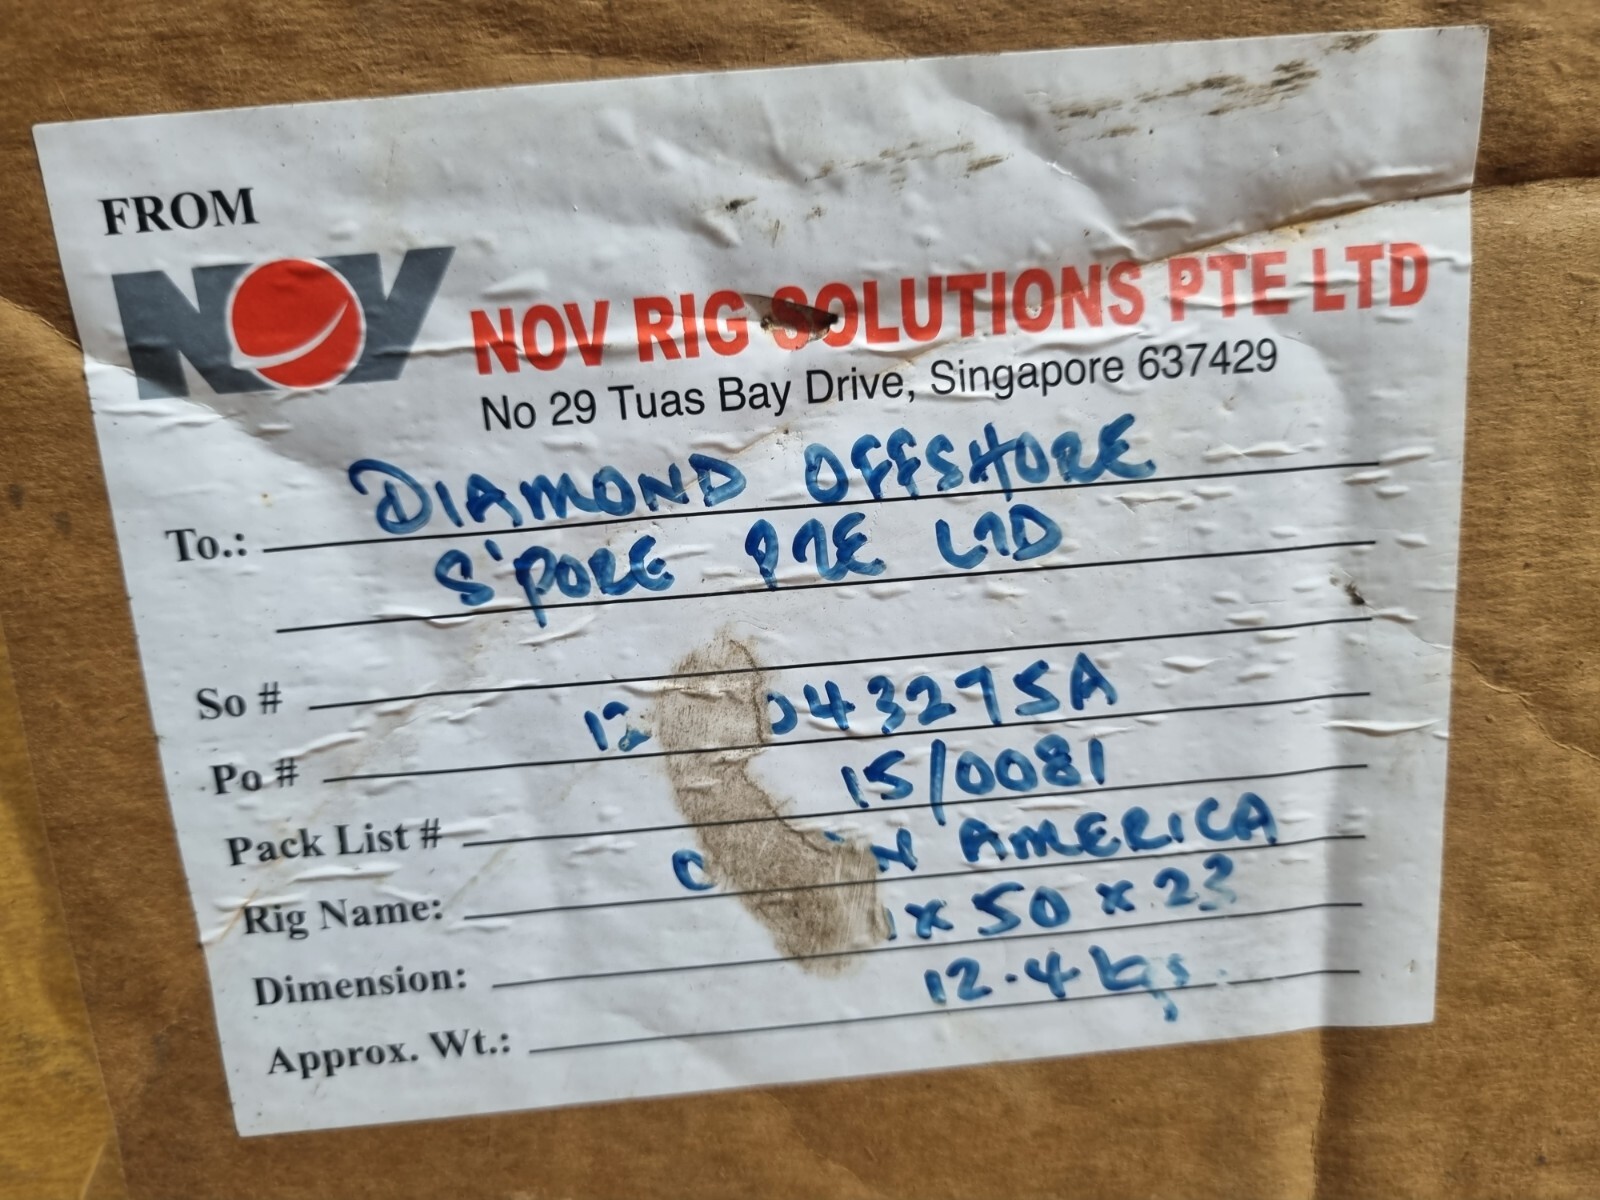 FROM
NOV
NOV RIG SOLUTIONS PTE LTD
No 29 Tuas Bay Drive, Singapore 637429
To.: DIAMOND OFFSHORE
S'PORE PTE LTD
So #
Po #
Pack List # 15/0081
Rig Name: AMERICA
Dimension: x 50 x 23
Approx. Wt.: 12.4 kgs